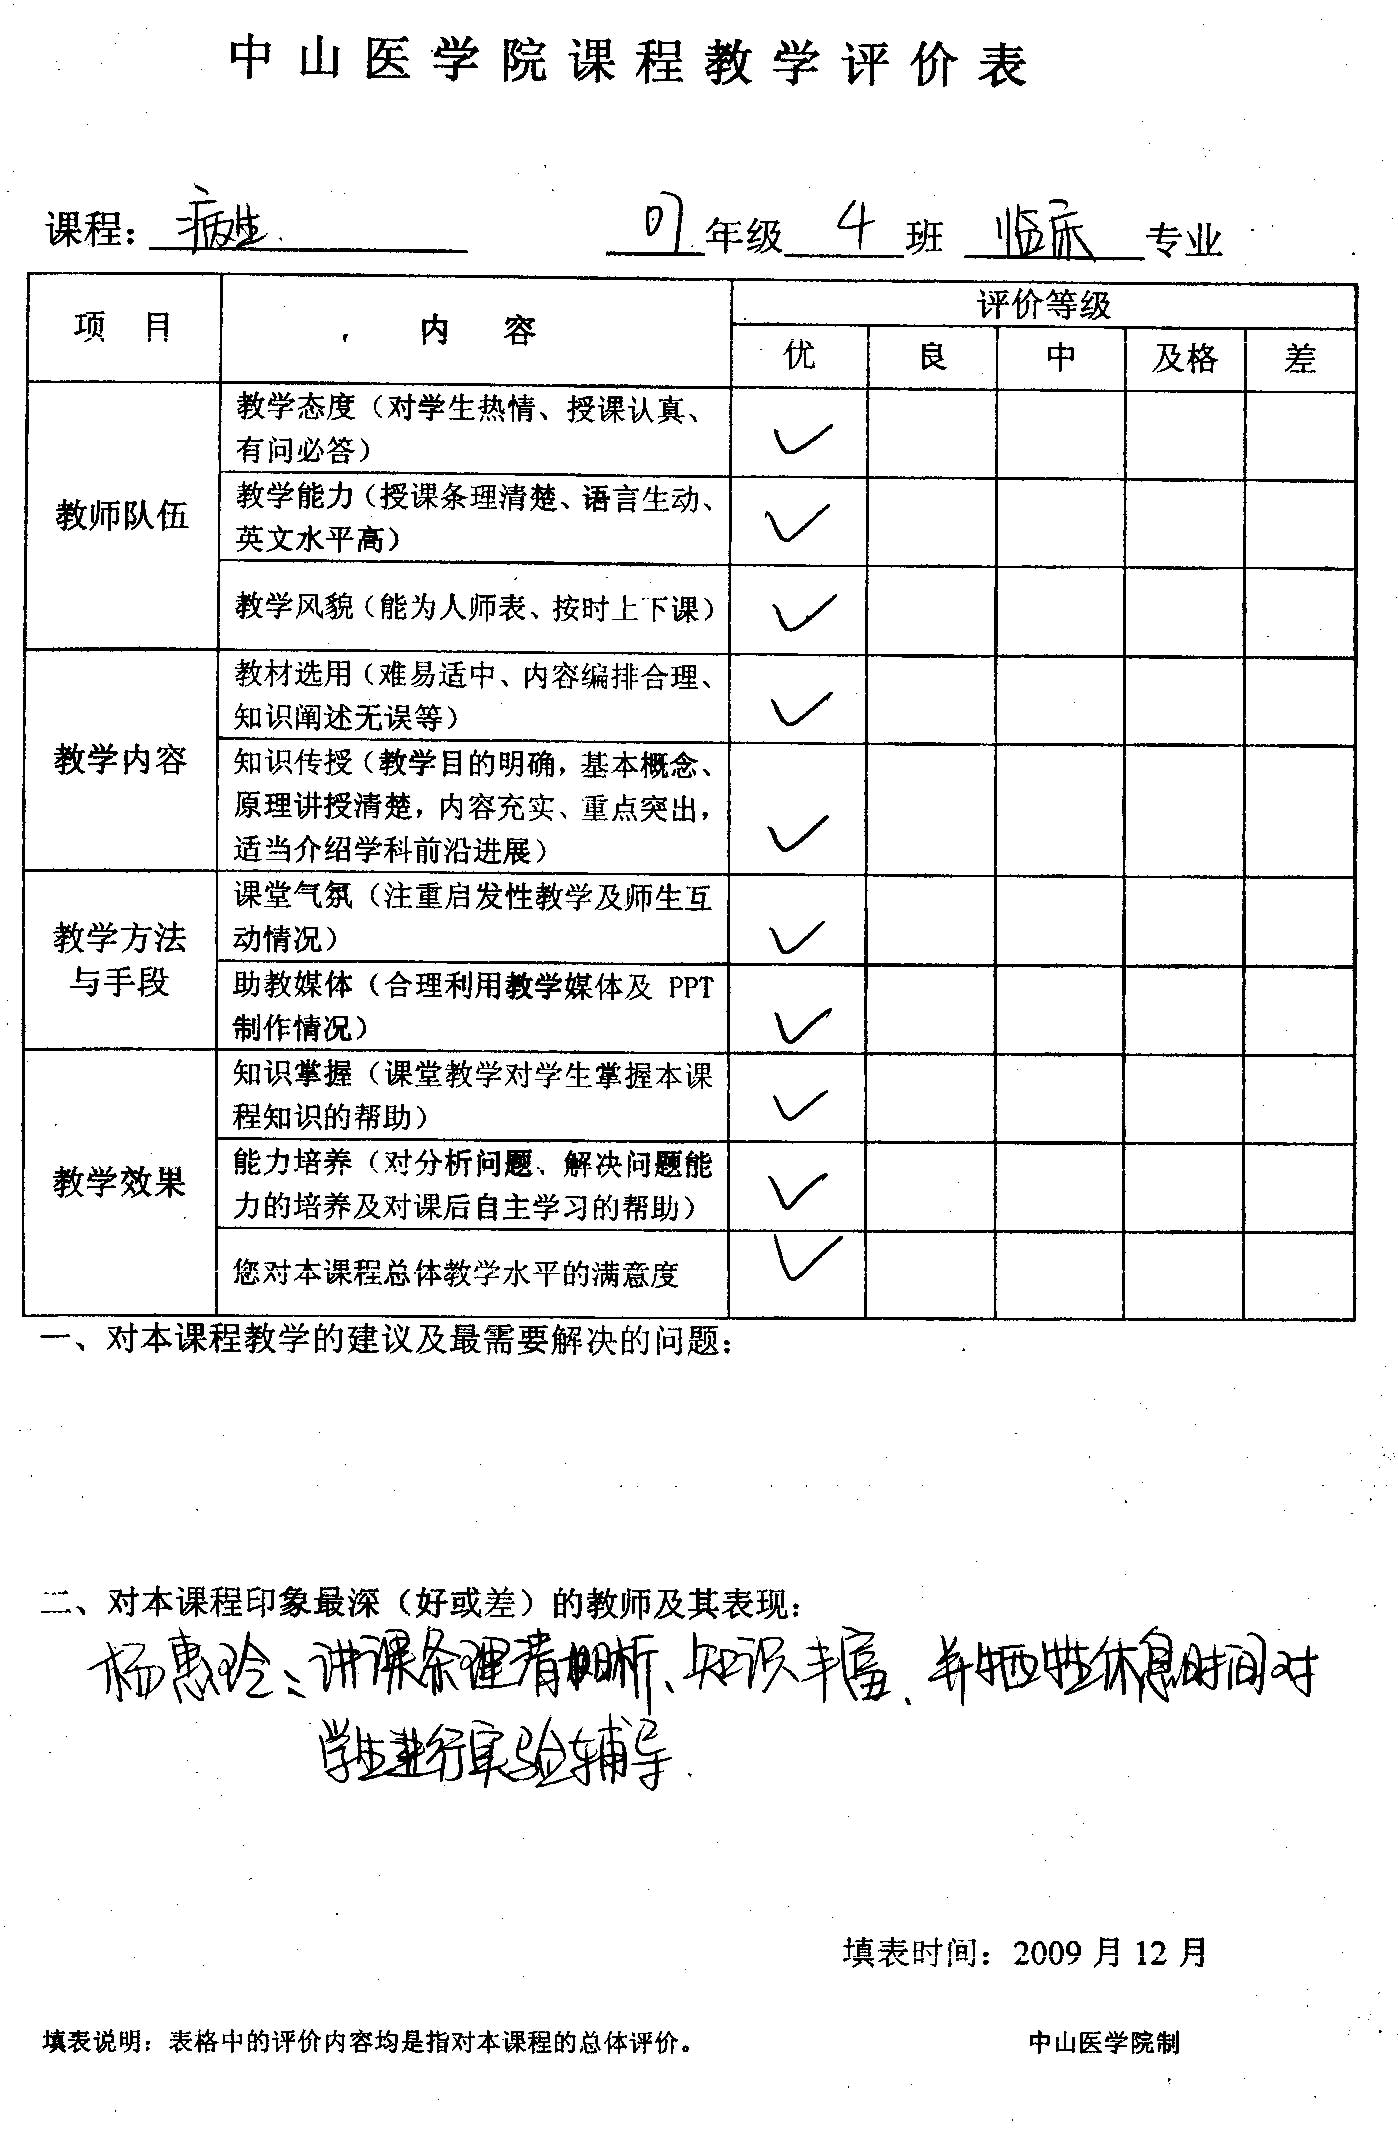 中山医学院课程教学评价表
课程：病生 07年级 4班 临床专业
项 目 内 容 评价等级
优 良 中 及格 差
教师队伍
教学态度（对学生热情、授课认真、
有问必答） ✓
教学能力（授课条理清楚、语言生动、
英文水平高） ✓
教学风貌（能为人师表、按时上下课） ✓
教学内容
教材选用（难易适中、内容编排合理、
知识阐述无误等） ✓
知识传授（教学目的明确，基本概念、
原理讲授清楚，内容充实、重点突出，
适当介绍学科前沿进展） ✓
教学方法
与手段
课堂气氛（注重启发性教学及师生互
动情况） ✓
助教媒体（合理利用教学媒体及 PPT
制作情况） ✓
教学效果
知识掌握（课堂教学对学生掌握本课
程知识的帮助） ✓
能力培养（对分析问题、解决问题能
力的培养及对课后自主学习的帮助） ✓
您对本课程总体教学水平的满意度 ✓
一、对本课程教学的建议及最需要解决的问题：
二、对本课程印象最深（好或差）的教师及其表现：
杨惠玲：讲课条理清晰、知识丰富、并牺牲休息时间对
学生进行实验辅导.
填表时间：2009 月 12 月
填表说明：表格中的评价内容均是指对本课程的总体评价。 中山医学院制